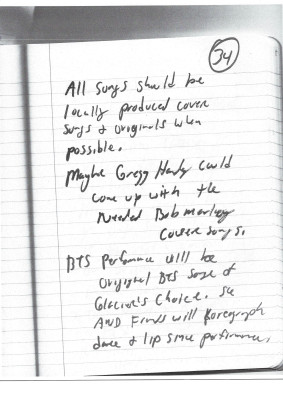 34
All songs should be
locally produced cover
songs & originals when
possible.
Maybe Gregg Hardy could
come up with the
needed Bob marley
Cover songs.
BTS Performance will be
original BTS songs of
Glacine's Choice. She
AND Friends will Koregraph
dance & lip sinc performance.